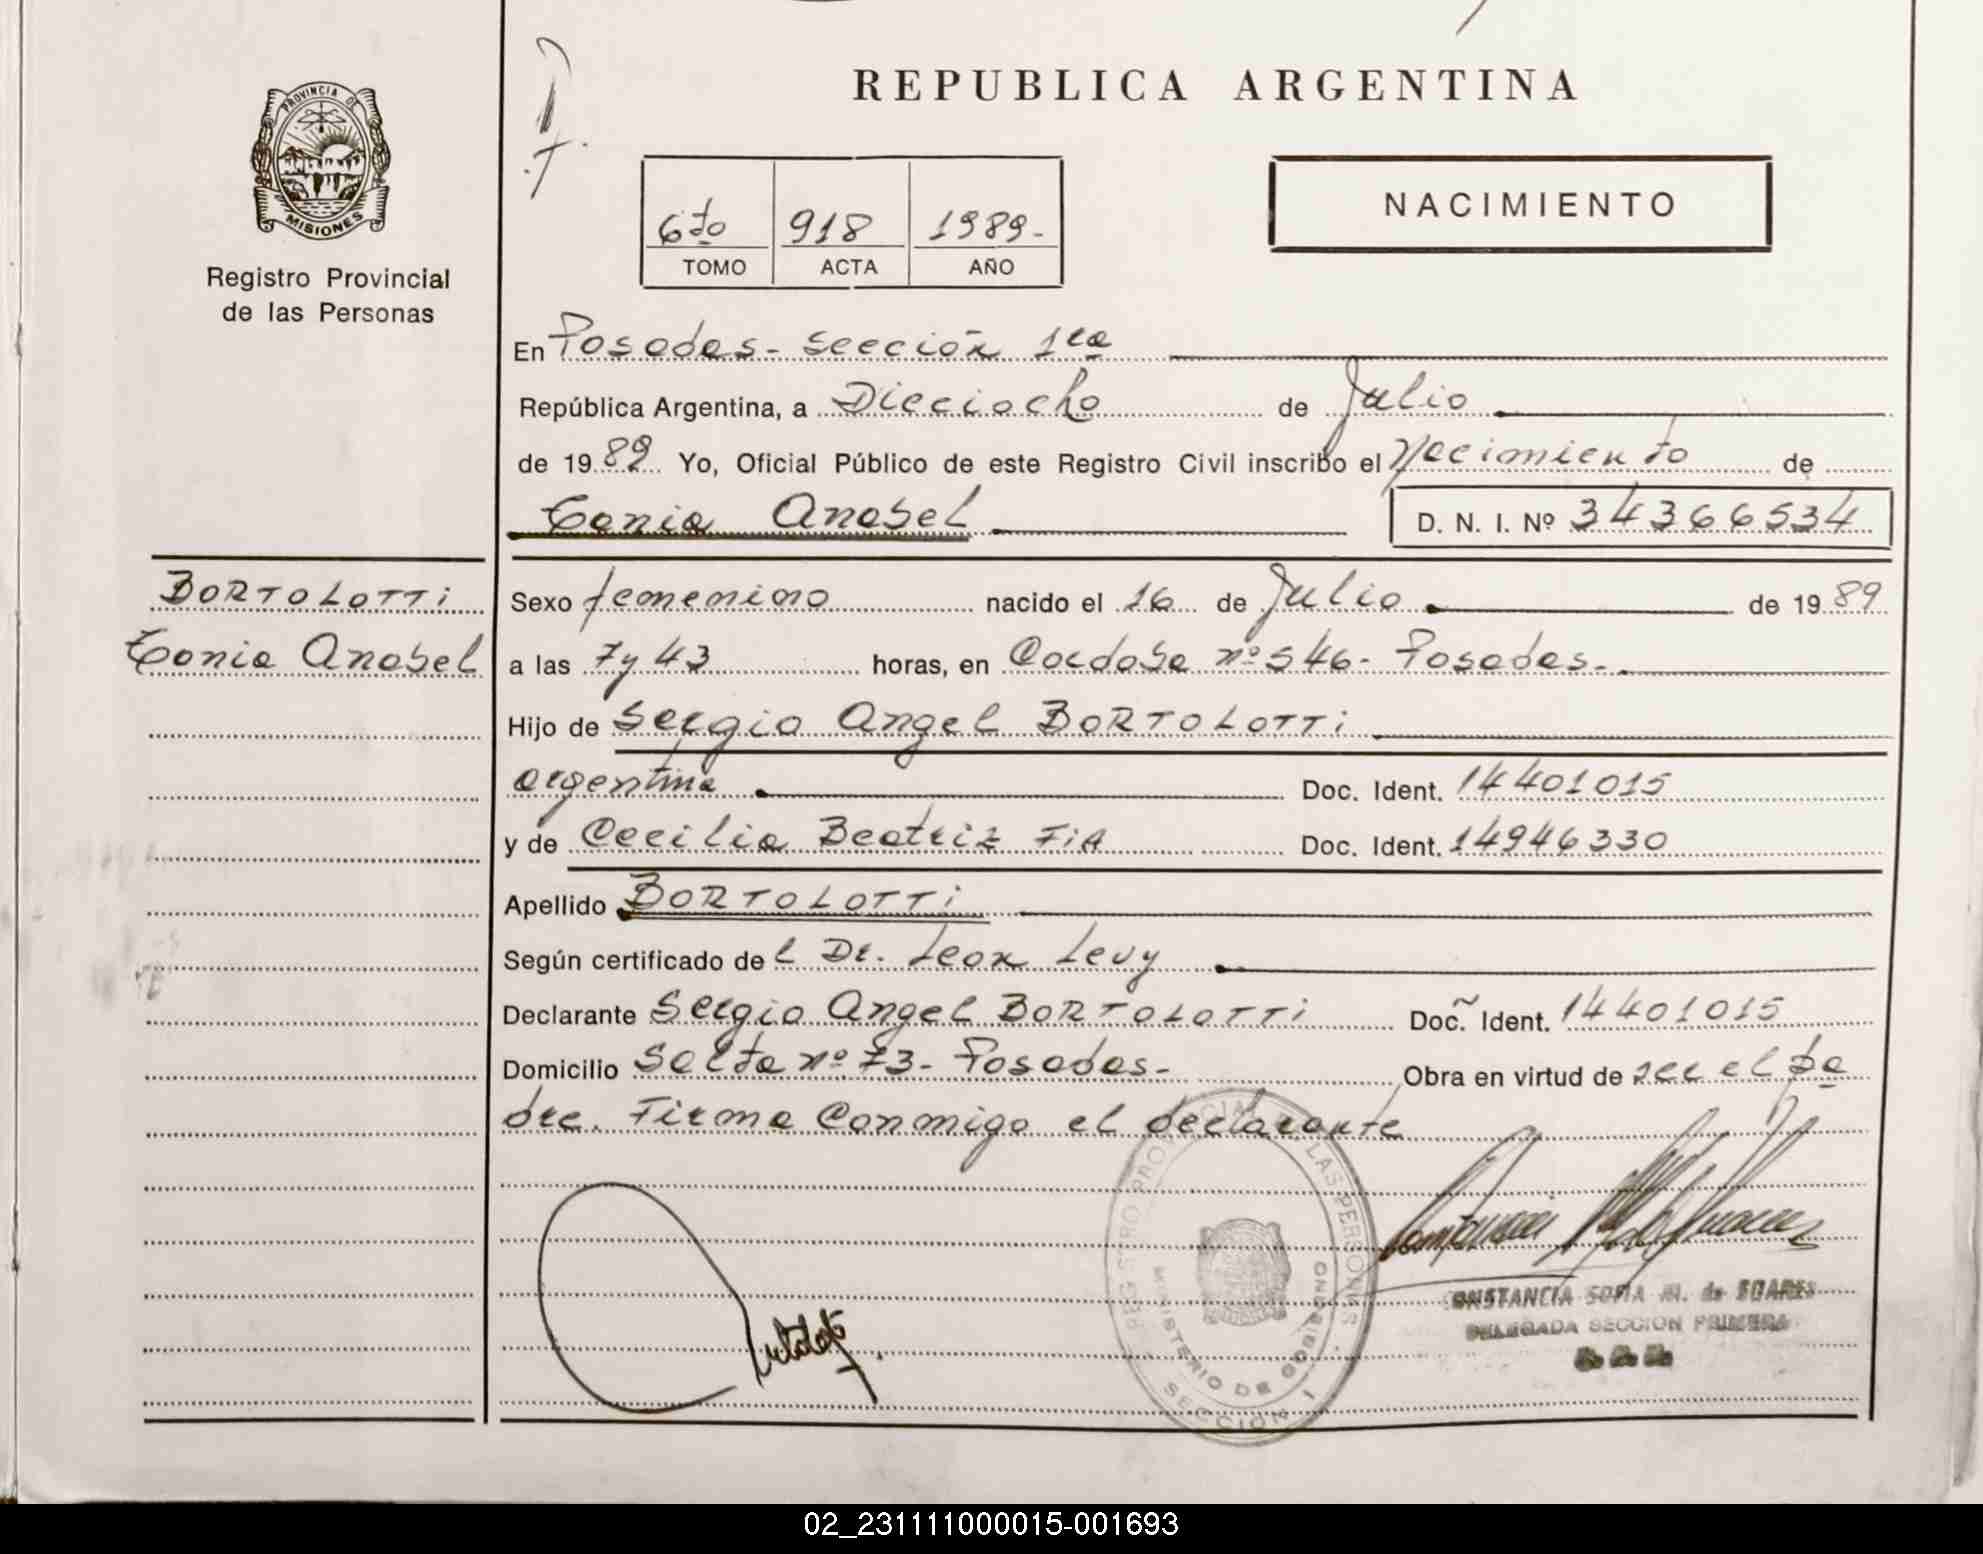 PROVINCIA DE
MISIONES
Registro Provincial
de las Personas
REPUBLICA ARGENTINA
NACIMIENTO
6to 918 1989-
TOMO ACTA AÑO
En Posadas - Sección 1ra
República Argentina, a Dieciocho de Julio
de 1989 Yo, Oficial Público de este Registro Civil inscribo el Nacimiento de
Tania Anabel D. N. I. Nº 34366534
BORTOLOTTi
Tania Anabel
Sexo femenino nacido el 16 de Julio de 1989
a las 7 y 43 horas, en Cordoba nº 546 - Posadas -
Hijo de Sergio Angel BORTOLOTTi
argentina Doc. Ident. 14401015
y de Cecilia Beatriz FiA Doc. Ident. 14946330
Apellido BORTOLOTTi
Según certificado del Dr. Leon Levy
Declarante Sergio Angel BORTOLOTTi Doc. Ident. 14401015
Domicilio Salta nº 73 - Posadas - Obra en virtud de ser el pa
dre. Firma Conmigo el declarante
REGISTRO PROVINCIAL DE LAS PERSONAS
MINISTERIO DE GOBIERNO
SECCION 1
CONSTANCIA SOFIA M. de SOARES
DELEGADA SECCION PRIMERA
02_231111000015-001693